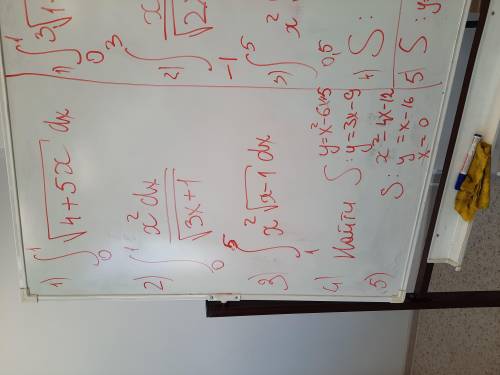 1) ∫₀¹ √(4+5x) dx
2) ∫₀ x² dx / √(3x+1)
3) ∫₁⁵ x² √(x-1) dx
4) Найти S: y=x²-6x+5
y=3x-9
5) S: x²-4x-12
y=x-16
x=0
1) ∫₀¹ 3√1
2) ∫₋₁³ x / √2
3) ∫ x²
4) S:
5) S: y